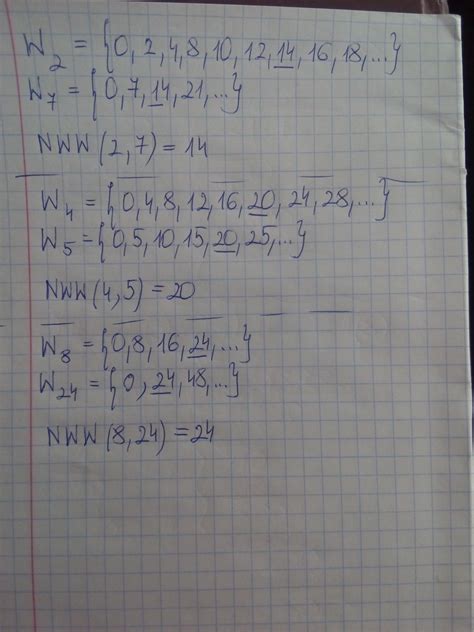 W₂ = {0, 2, 4, 8, 10, 12, 14, 16, 18, ...}
W₇ = {0, 7, 14, 21, ...}
NWW (2, 7) = 14
W₄ = {0, 4, 8, 12, 16, 20, 24, 28, ...}
W₅ = {0, 5, 10, 15, 20, 25, ...}
NWW (4, 5) = 20
W₈ = {0, 8, 16, 24, ...}
W₂₄ = {0, 24, 48, ...}
NWW (8, 24) = 24